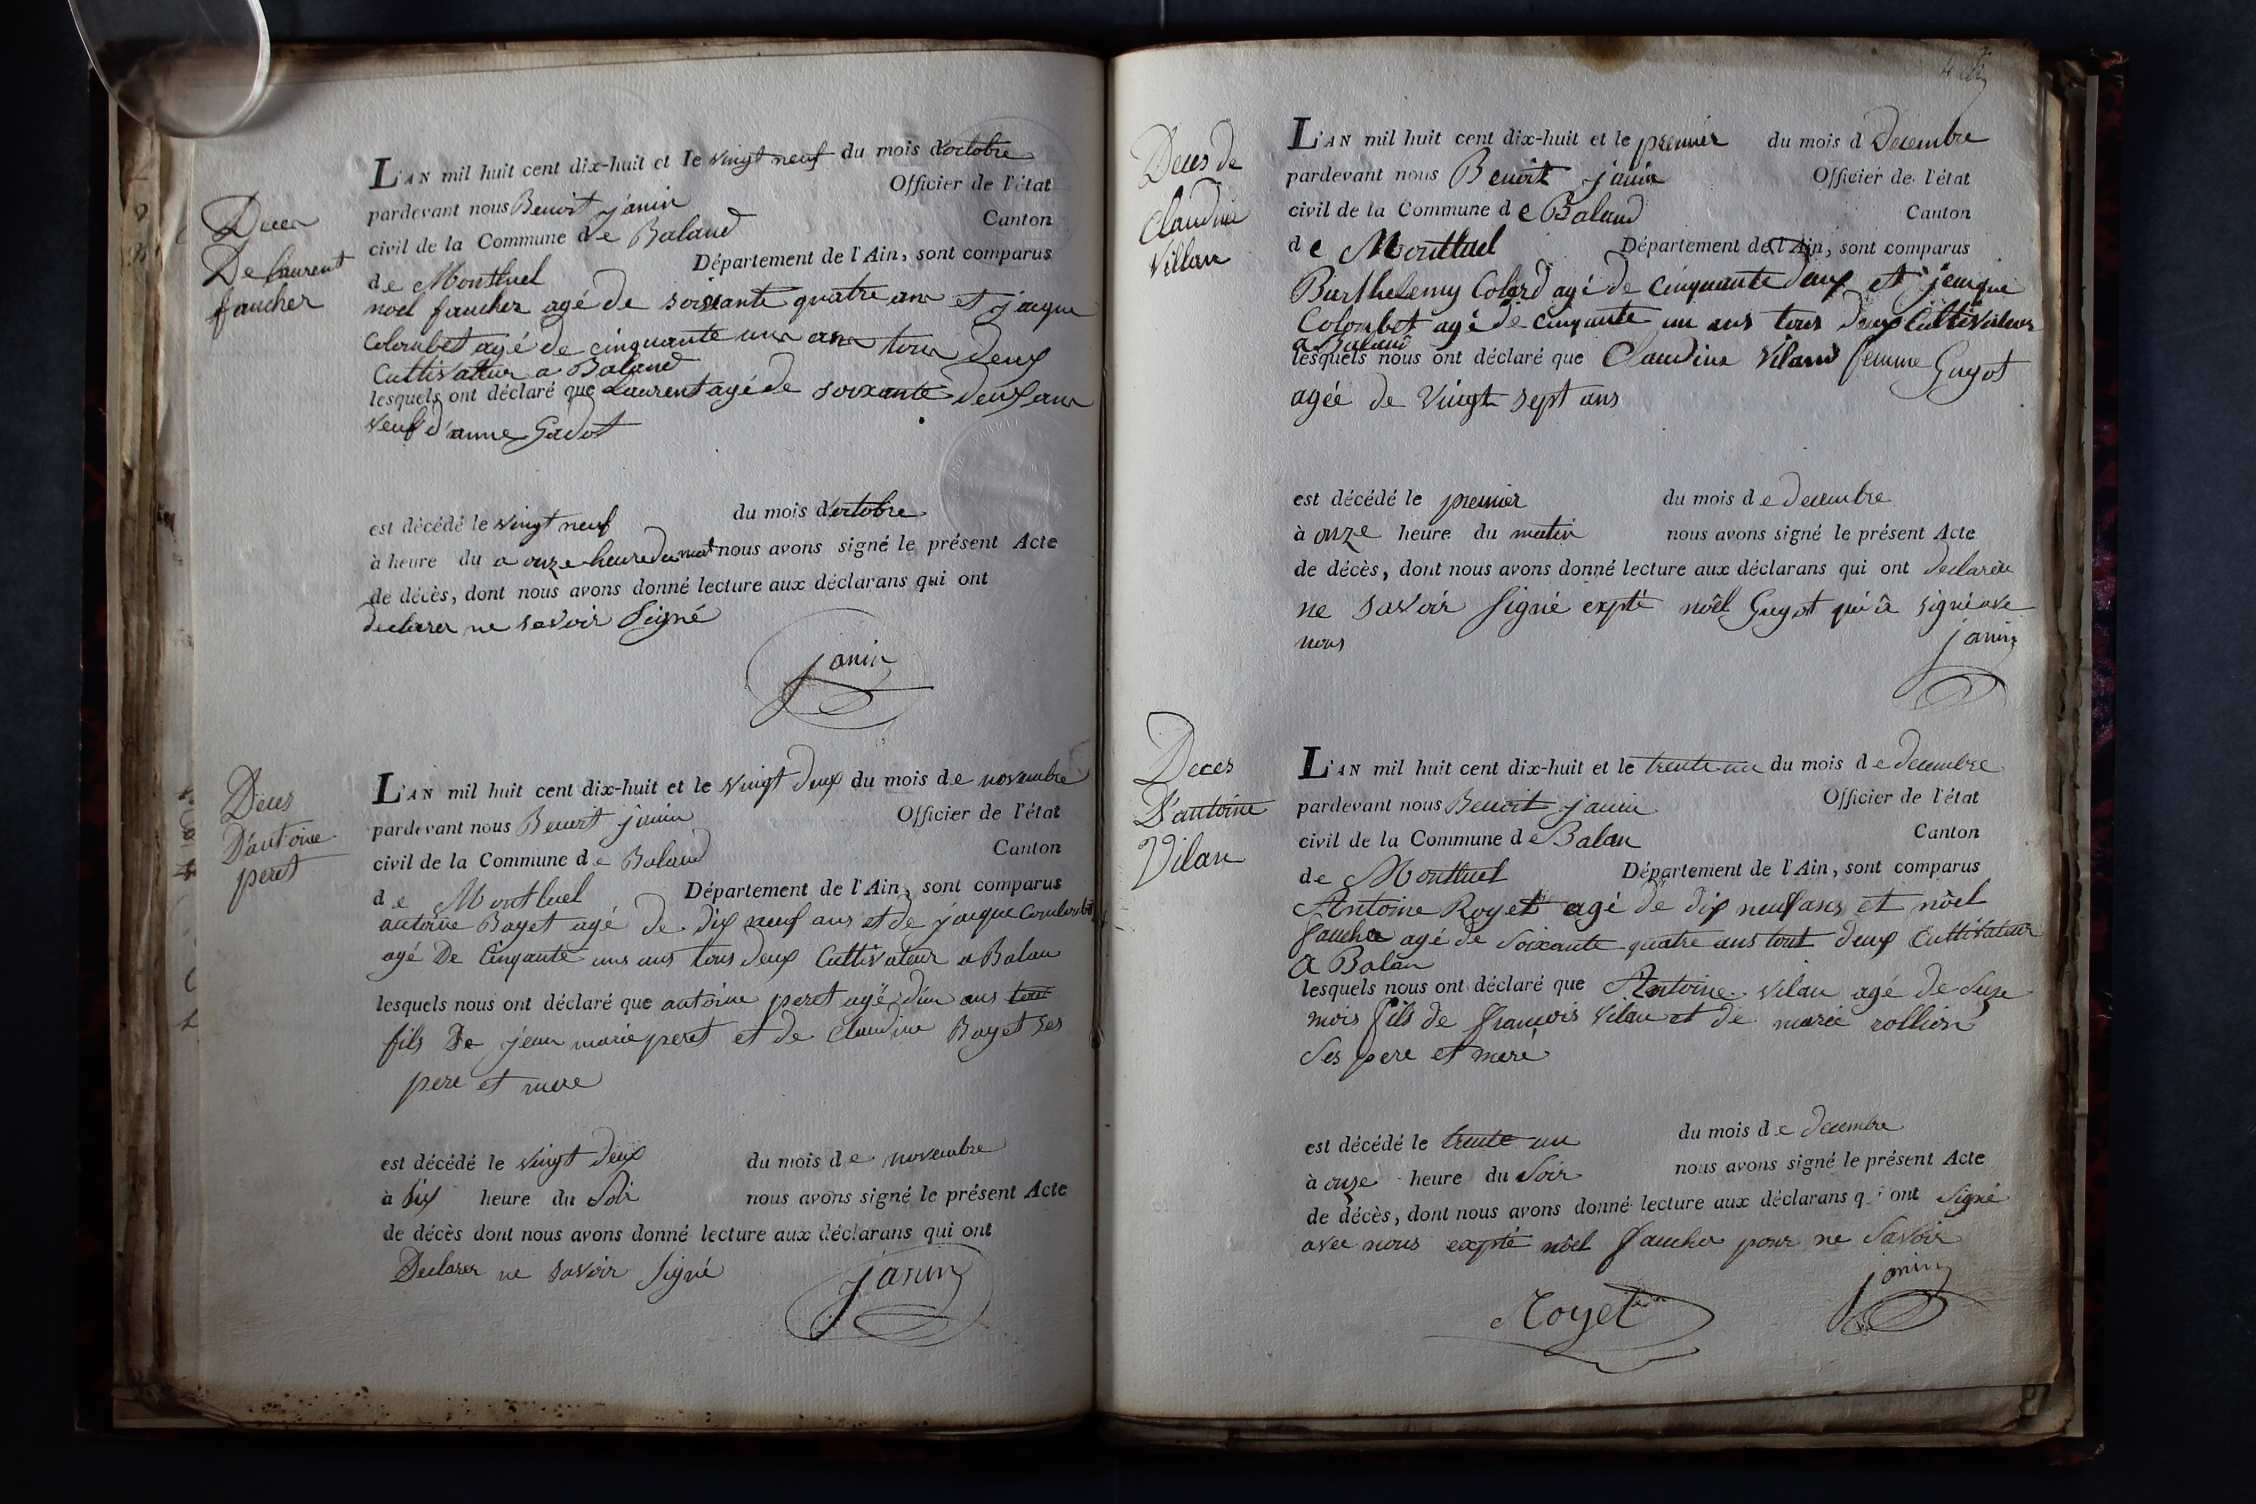 Deces
De laurent
faucher
L'AN mil huit cent dix-huit et le vingt neuf du mois d'octobre
pardevant nous Benoit janin Officier de l'état
civil de la Commune de Baland Canton
de Montluel Département de l'Ain, sont comparus
noel faucher agé de soixante quatre ans et jacque
Colombet agé de cinquante un ans tous deux
Cultivateur a Baland
lesquels ont déclaré que Laurent agé de soixante deux ans
veuf d'anne Gadot
est décédé le vingt neuf du mois d'octobre
à heure du a onze heure du mat nous avons signé le présent Acte
de décès, dont nous avons donné lecture aux déclarans qui ont
declarer ne savoir signé
janin
Deces
D'antoine
peret
L'AN mil huit cent dix-huit et le vingt deux du mois de novembre
pardevant nous Benoit janin Officier de l'état
civil de la Commune de Baland Canton
de Montluel Département de l'Ain, sont comparus
antoine Boyet agé de dix neuf ans et de jacque Coulombet
agé De Cinqante uns ans tous deux Cultivateur a Balan
lesquels nous ont déclaré que antoine peret agé d'un ans tout
fils De jean marie peret et de Claudine Boyet ses
pere et mere
est décédé le vingt deux du mois de novembre
à six heure du Soir nous avons signé le présent Acte
de décès dont nous avons donné lecture aux déclarans qui ont
Declarer ne savoir signé
janin
Deces de
Claudine
Villan
L'AN mil huit cent dix-huit et le premier du mois d Decembre
pardevant nous Benoit janin Officier de l'état
civil de la Commune de Baland Canton
de Montluel Département de l'Ain, sont comparus
Barthelemy Colard agé de cinquante deux et jcacque
Colombet agé de cinquante un ans tous deux Cultivateur
a Baland
lesquels nous ont déclaré que Claudine Viland femme Guyot
agée de vingt sept ans
est décédé le premier du mois de decembre
à onze heure du matin nous avons signé le présent Acte
de décès, dont nous avons donné lecture aux déclarans qui ont declarée
ne savoir signé expté noêl Guyot qui a signé ave
nous
janin
Deces
D'antoine
Vilan
L'AN mil huit cent dix-huit et le trente un du mois de decembre
pardevant nous Benoit janin Officier de l'état
civil de la Commune de Balan Canton
de Montluel Département de l'Ain, sont comparus
Antoine Royet agé de dix neuf ans et nôel
faucher agé de Soixante quatre ans tout deux Cultivateur
A Balan
lesquels nous ont déclaré que Antoine Vilan agé de Suze
mois fils de françois Vilan et de marie rollion
Ses pere et mere
est décédé le trente un du mois de decembre
à onze heure du Soir nous avons signé le présent Acte
de décès, dont nous avons donné lecture aux déclarans qui ont signé
avec nous expté nôel faucher pour ne Savoir
Royet
janin